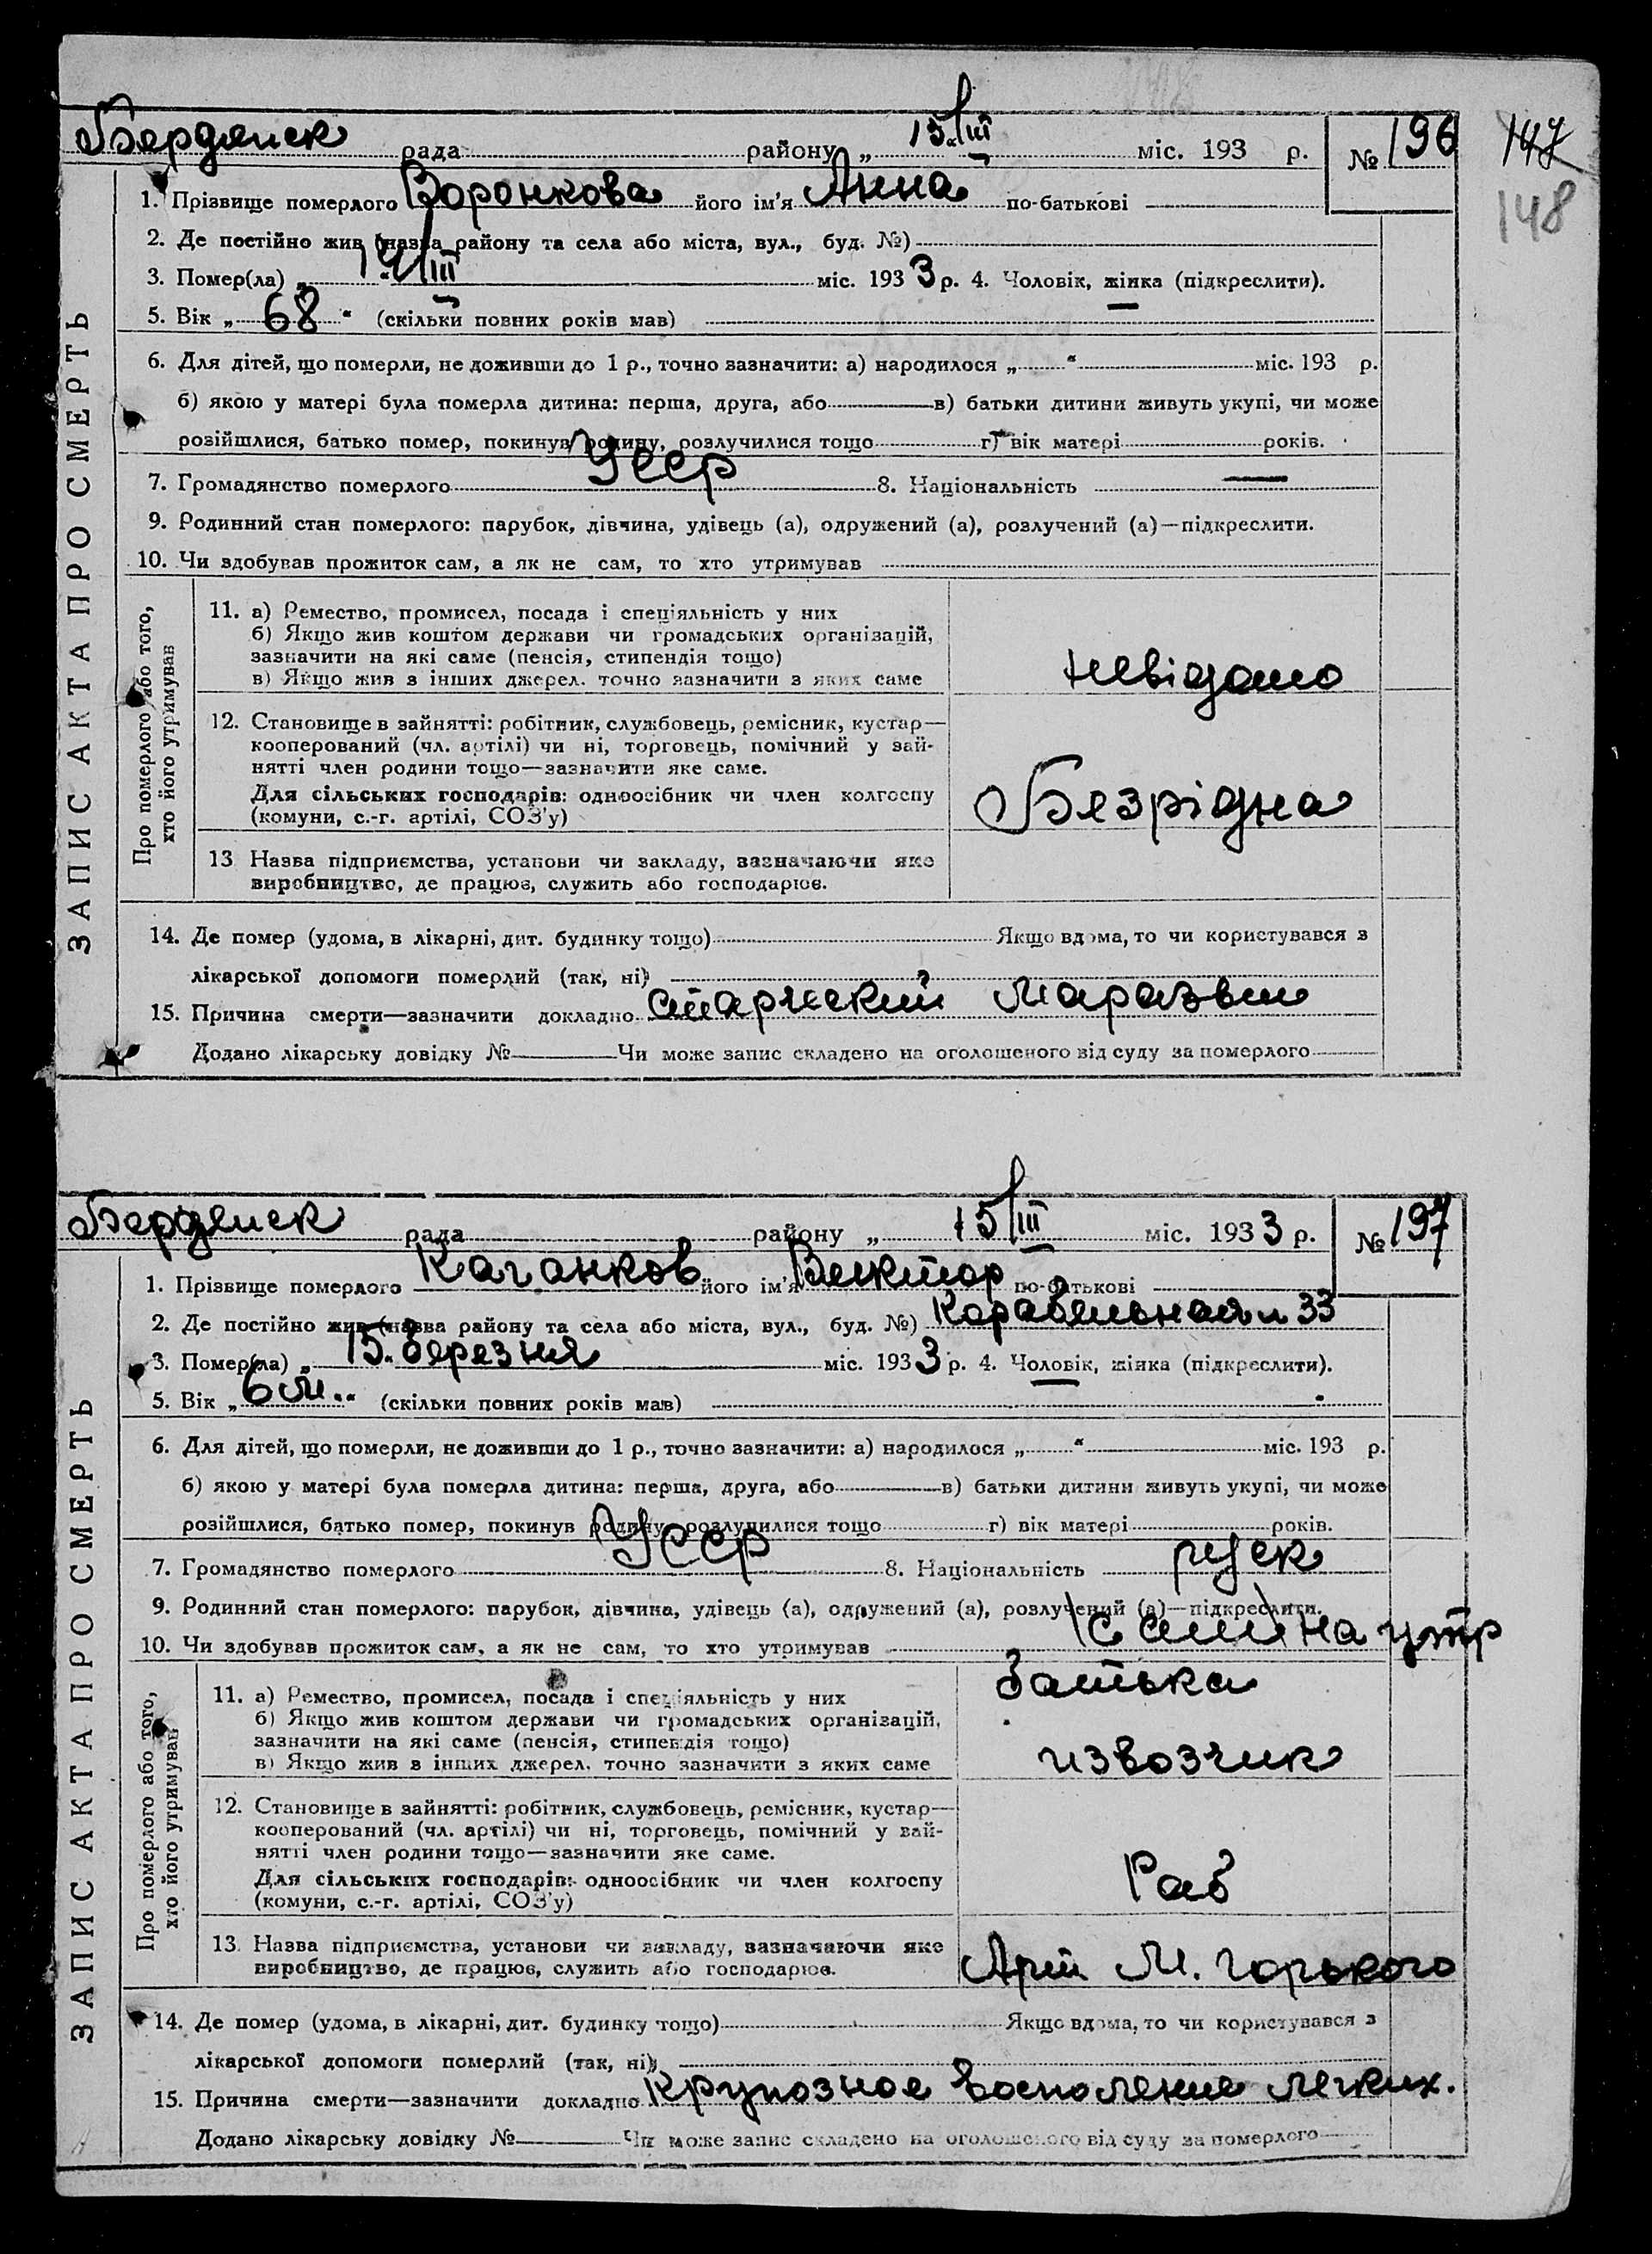 Бердянск рада району „ 15/III міс. 193 р. № 196 147
148
1. Прізвище померлого Воронкова його ім'я Анна по-батькові
2. Де постійно жив (назва району та села або міста, вул., буд. №)
3. Помер(ла) „ 14/III міс. 193 3 р. 4. Чоловік, жінка (підкреслити).
5. Вік „ 68 “ (скільки повних років мав)
6. Для дітей, що померли, не доживши до 1 р., точно зазначити: а) народилося „ “ міс. 193 р.
б) якою у матері була померла дитина: перша, друга, або в) батьки дитини живуть укупі, чи може
розійшлися, батько помер, покинув родину, розлучилися тощо г) вік матері років.
7. Громадянство померлого Усср 8. Національність —
9. Родинний стан померлого: парубок, дівчина, удівець (а), одружений (а), розлучений (а)—підкреслити.
10. Чи здобував прожиток сам, а як не сам, то хто утримував
ЗАПИС АКТА ПРО СМЕРТЬ
Про померлого або того,
хто його утримував
11. а) Ремество, промисел, посада і спеціяльність у них
б) Якщо жив коштом держави чи громадських організацій,
зазначити на які саме (пенсія, стипендія тощо)
в) Якщо жив з інших джерел. точно зазначити з яких саме
невідомо
12. Становище в зайнятті: робітник, службовець, ремісник, кустар—
кооперований (чл. артілі) чи ні, торговець, помічний у зай-
нятті член родини тощо—зазначити яке саме.
Для сільських господарів: одноосібник чи член колгоспу
(комуни, с.-г. артілі, СОЗ'у)
Безрідна
13. Назва підприємства, установи чи закладу, зазначаючи яке
виробництво, де працює, служить або господарює.
14. Де помер (удома, в лікарні, дит. будинку тощо) Якщо вдома, то чи користувався з
лікарської допомоги померлий (так, ні)
15. Причина смерти—зазначити докладно старческий маразвм
Додано лікарську довідку № Чи може запис складено на оголошеного від суду за померлого
Бердянск рада району „ 15/III міс. 193 3 р. № 197
1. Прізвище померлого Каганков його ім'я Виктор по-батькові
2. Де постійно жив (назва району та села або міста, вул., буд. №) Карабельная 33
3. Помер(ла) „ 15. березня міс. 193 3 р. 4. Чоловік, жінка (підкреслити).
5. Вік „ 6 м. “ (скільки повних років мав)
6. Для дітей, що померли, не доживши до 1 р., точно зазначити: а) народилося „ “ міс. 193 р.
б) якою у матері була померла дитина: перша, друга, або в) батьки дитини живуть укупі, чи може
розійшлися, батько помер, покинув родину, розлучилися тощо г) вік матері років.
7. Громадянство померлого Усср 8. Національність руск
9. Родинний стан померлого: парубок, дівчина, удівець (а), одружений (а), розлучений (а)—підкреслити.
10. Чи здобував прожиток сам, а як не сам, то хто утримував на утр
ЗАПИС АКТА ПРО СМЕРТЬ
Про померлого або того,
хто його утримував
батька
11. а) Ремество, промисел, посада і спеціяльність у них
б) Якщо жив коштом держави чи громадських організацій,
зазначити на які саме (пенсія, стипендія тощо)
в) Якщо жив з інших джерел. точно зазначити з яких саме
извозчик
12. Становище в зайнятті: робітник, службовець, ремісник, кустар—
кооперований (чл. артілі) чи ні, торговець, помічний у зай-
нятті член родини тощо—зазначити яке саме.
Для сільських господарів: одноосібник чи член колгоспу
(комуни, с.-г. артілі, СОЗ'у)
Раб
13. Назва підприємства, установи чи закладу, зазначаючи яке
виробництво, де працює, служить або господарює.
Арт М. Горького
14. Де помер (удома, в лікарні, дит. будинку тощо) Якщо вдома, то чи користувався з
лікарської допомоги померлий (так, ні)
15. Причина смерти—зазначити докладно Крупозное воспаление легких.
Додано лікарську довідку № Чи може запис складено на оголошеного від суду за померлого